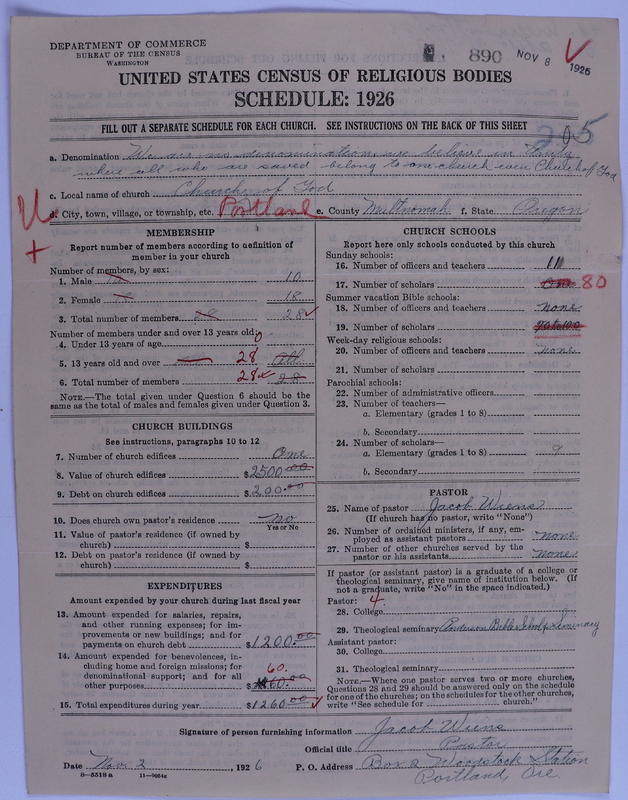 DEPARTMENT OF COMMERCE
BUREAU OF THE CENSUS
WASHINGTON
890 NOV 8 1926
UNITED STATES CENSUS OF RELIGIOUS BODIES
SCHEDULE: 1926
FILL OUT A SEPARATE SCHEDULE FOR EACH CHURCH. SEE INSTRUCTIONS ON THE BACK OF THIS SHEET
a. Denomination We are no denomination, we believe in
where all who are saved belong to one church even Church of God
c. Local name of church Church of God
d. City, town, village, or township, etc. Portland e. County Multnomah f. State Oregon
MEMBERSHIP
Report number of members according to definition of
member in your church
Number of members, by sex:
1. Male 10
2. Female 18
3. Total number of members 28
Number of members under and over 13 years old:
4. Under 13 years of age 0
5. 13 years old and over 28 All
6. Total number of members 28 28
NOTE.—The total given under Question 6 should be
same as the total of males and females given under Question 3.
CHURCH BUILDINGS
See instructions, paragraphs 10 to 12
7. Number of church edifices One
8. Value of church edifices $2500.00
9. Debt on church edifices $200.00
10. Does church own pastor's residence No
Yes or No
11. Value of pastor's residence (if owned by
church) $
12. Debt on pastor's residence (if owned by
church) $
EXPENDITURES
Amount expended by your church during last fiscal year
13. Amount expended for salaries, repairs,
and other running expenses; for im-
provements or new buildings; and for
payments on church debt $1200.00
14. Amount expended for benevolences, in-
cluding home and foreign missions; for
denominational support; and for all
other purposes 60. $60.00
15. Total expenditures during year $1260.00
CHURCH SCHOOLS
Report here only schools conducted by this church
Sunday schools:
16. Number of officers and teachers 11
17. Number of scholars 80
Summer vacation Bible schools:
18. Number of officers and teachers none
19. Number of scholars
Week-day religious schools:
20. Number of officers and teachers none
21. Number of scholars
Parochial schools:
22. Number of administrative officers
23. Number of teachers—
a. Elementary (grades 1 to 8)
b. Secondary
24. Number of scholars—
a. Elementary (grades 1 to 8) 9
b. Secondary
PASTOR
25. Name of pastor Jacob Wiens
(If church has no pastor, write "None")
26. Number of ordained ministers, if any, em-
ployed as assistant pastors none
27. Number of other churches served by the
pastor or his assistants none
If pastor (or assistant pastor) is a graduate of a college or
theological seminary, give name of institution below. (If
not a graduate, write "No" in the space indicated.)
Pastor: 4
28. College
29. Theological seminary Anderson Bible School & Seminary
Assistant pastor:
30. College
31. Theological seminary
NOTE.—Where one pastor serves two or more churches,
Questions 28 and 29 should be answered only on the schedule
for one of the churches; on the schedules for the other churches,
write "See schedule for church."
Signature of person furnishing information Jacob Wiens
Official title Pastor
Date Nov 2, 1926 P. O. Address Box 2 Woodstock Station
8—5518a 11—9054z Portland, Ore